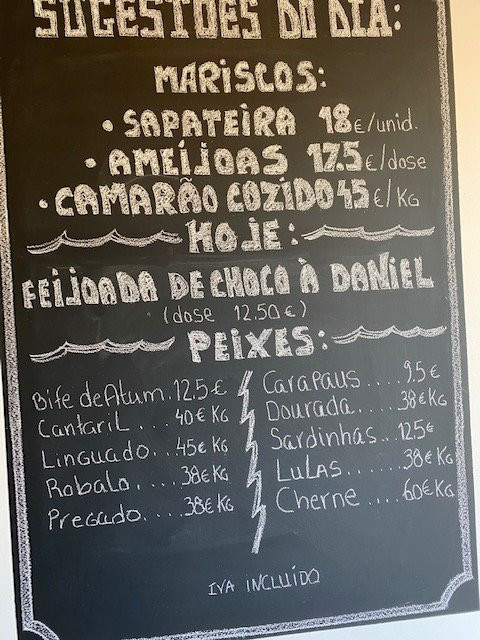 SUGESTÕES DO DIA:
MARISCOS:
• SAPATEIRA 18€/unid.
• AMEÍJOAS 17.5€/dose
• CAMARÃO COZIDO 45€/KG
HOJE:
FEIJOADA DE CHOCO À DANIEL
(dose 12.50€)
PEIXES:
Bife de Atum.12.5€
Cantaril...40€ KG
Linguado...45€ KG
Robalo....38€ KG
Pregado....38€ KG
Carapaus....9.5€
Dourada....38€ KG
Sardinhas..12.5€
Lulas....38€ KG
Cherne....60€ KG
IVA INCLUÍDO